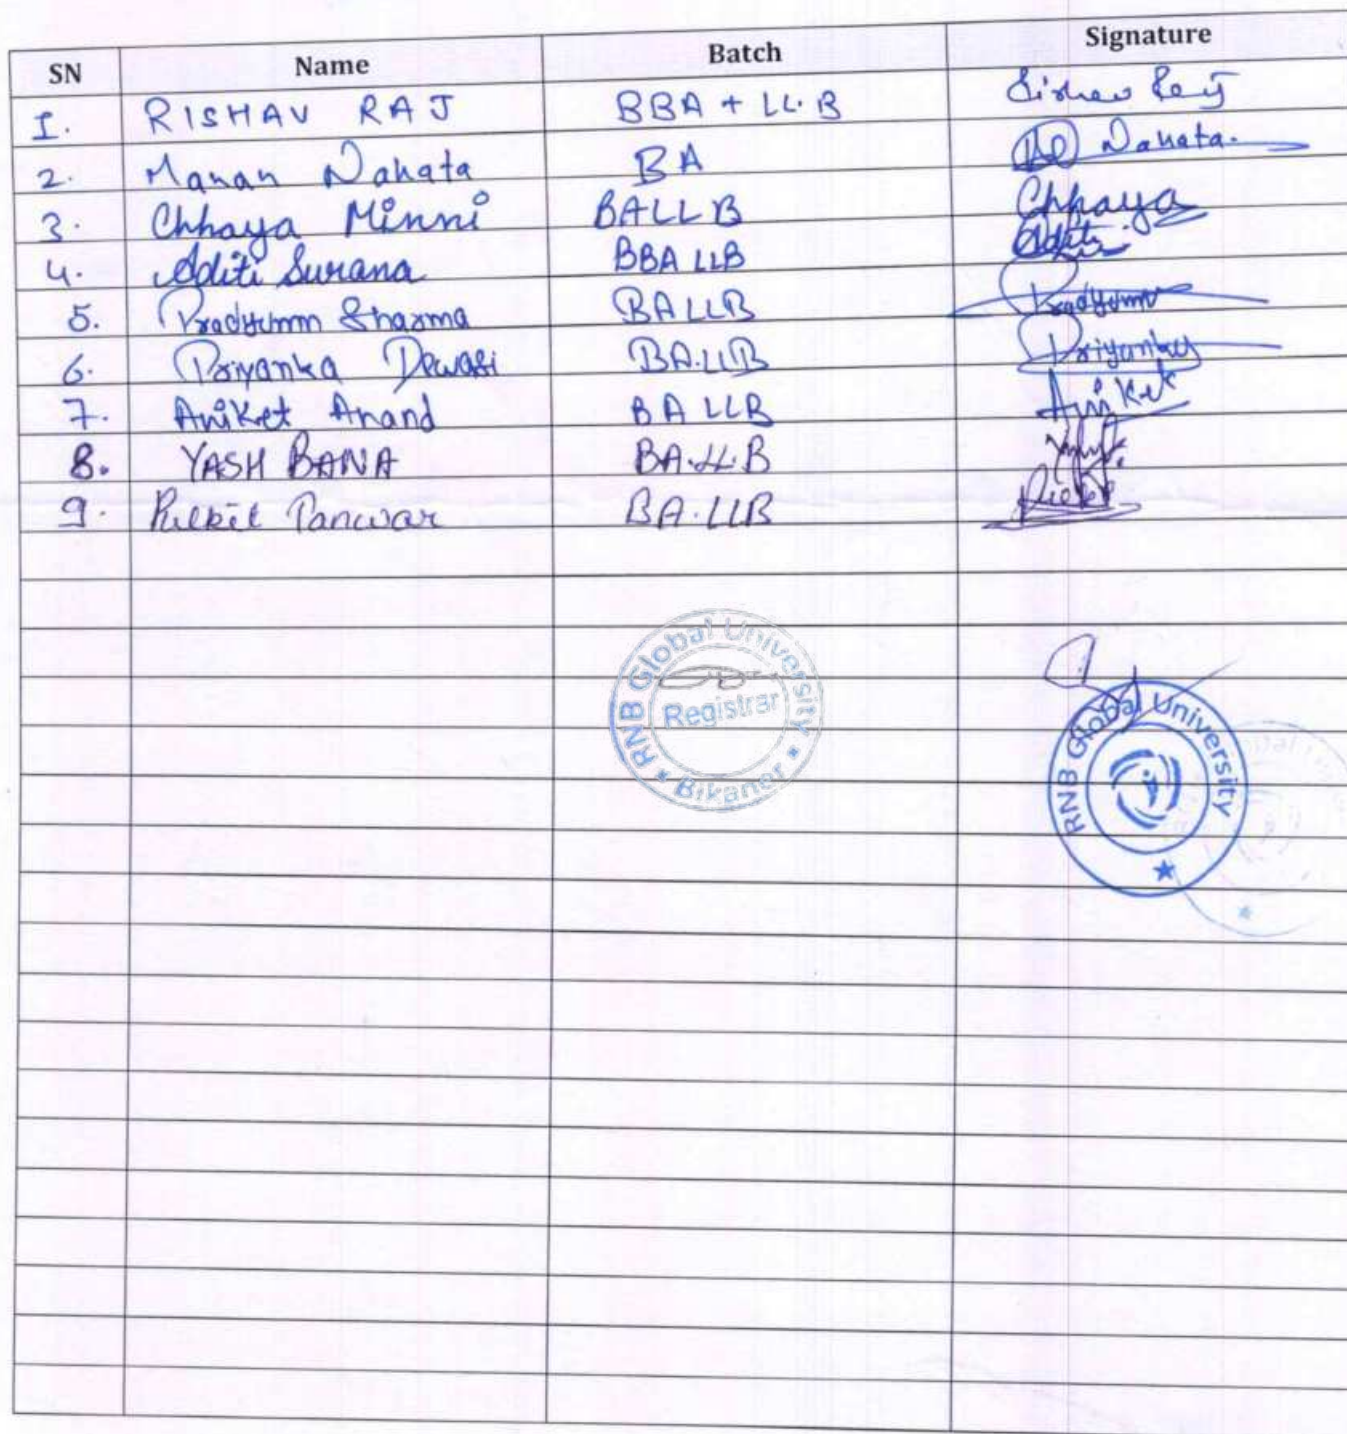 SN Name Batch Signature
I. RISHAV RAJ BBA + LL.B
2. Manan Nahata BA Nahata.
3. Chhaya Minni BALLB Chhaya
4. Aditi Surana BBA LLB Aditi
5. Pradyumn Sharma BALLB Pradyumn
6. Priyanka Dewasi BA.LLB Priyanka
7. Aniket Anand BA LLB Aniket
8. YASH BANA BA.LL.B
9. Pulkit Panwar BA.LLB
RNB Global University
Registrar
Bikaner
RNB Global University